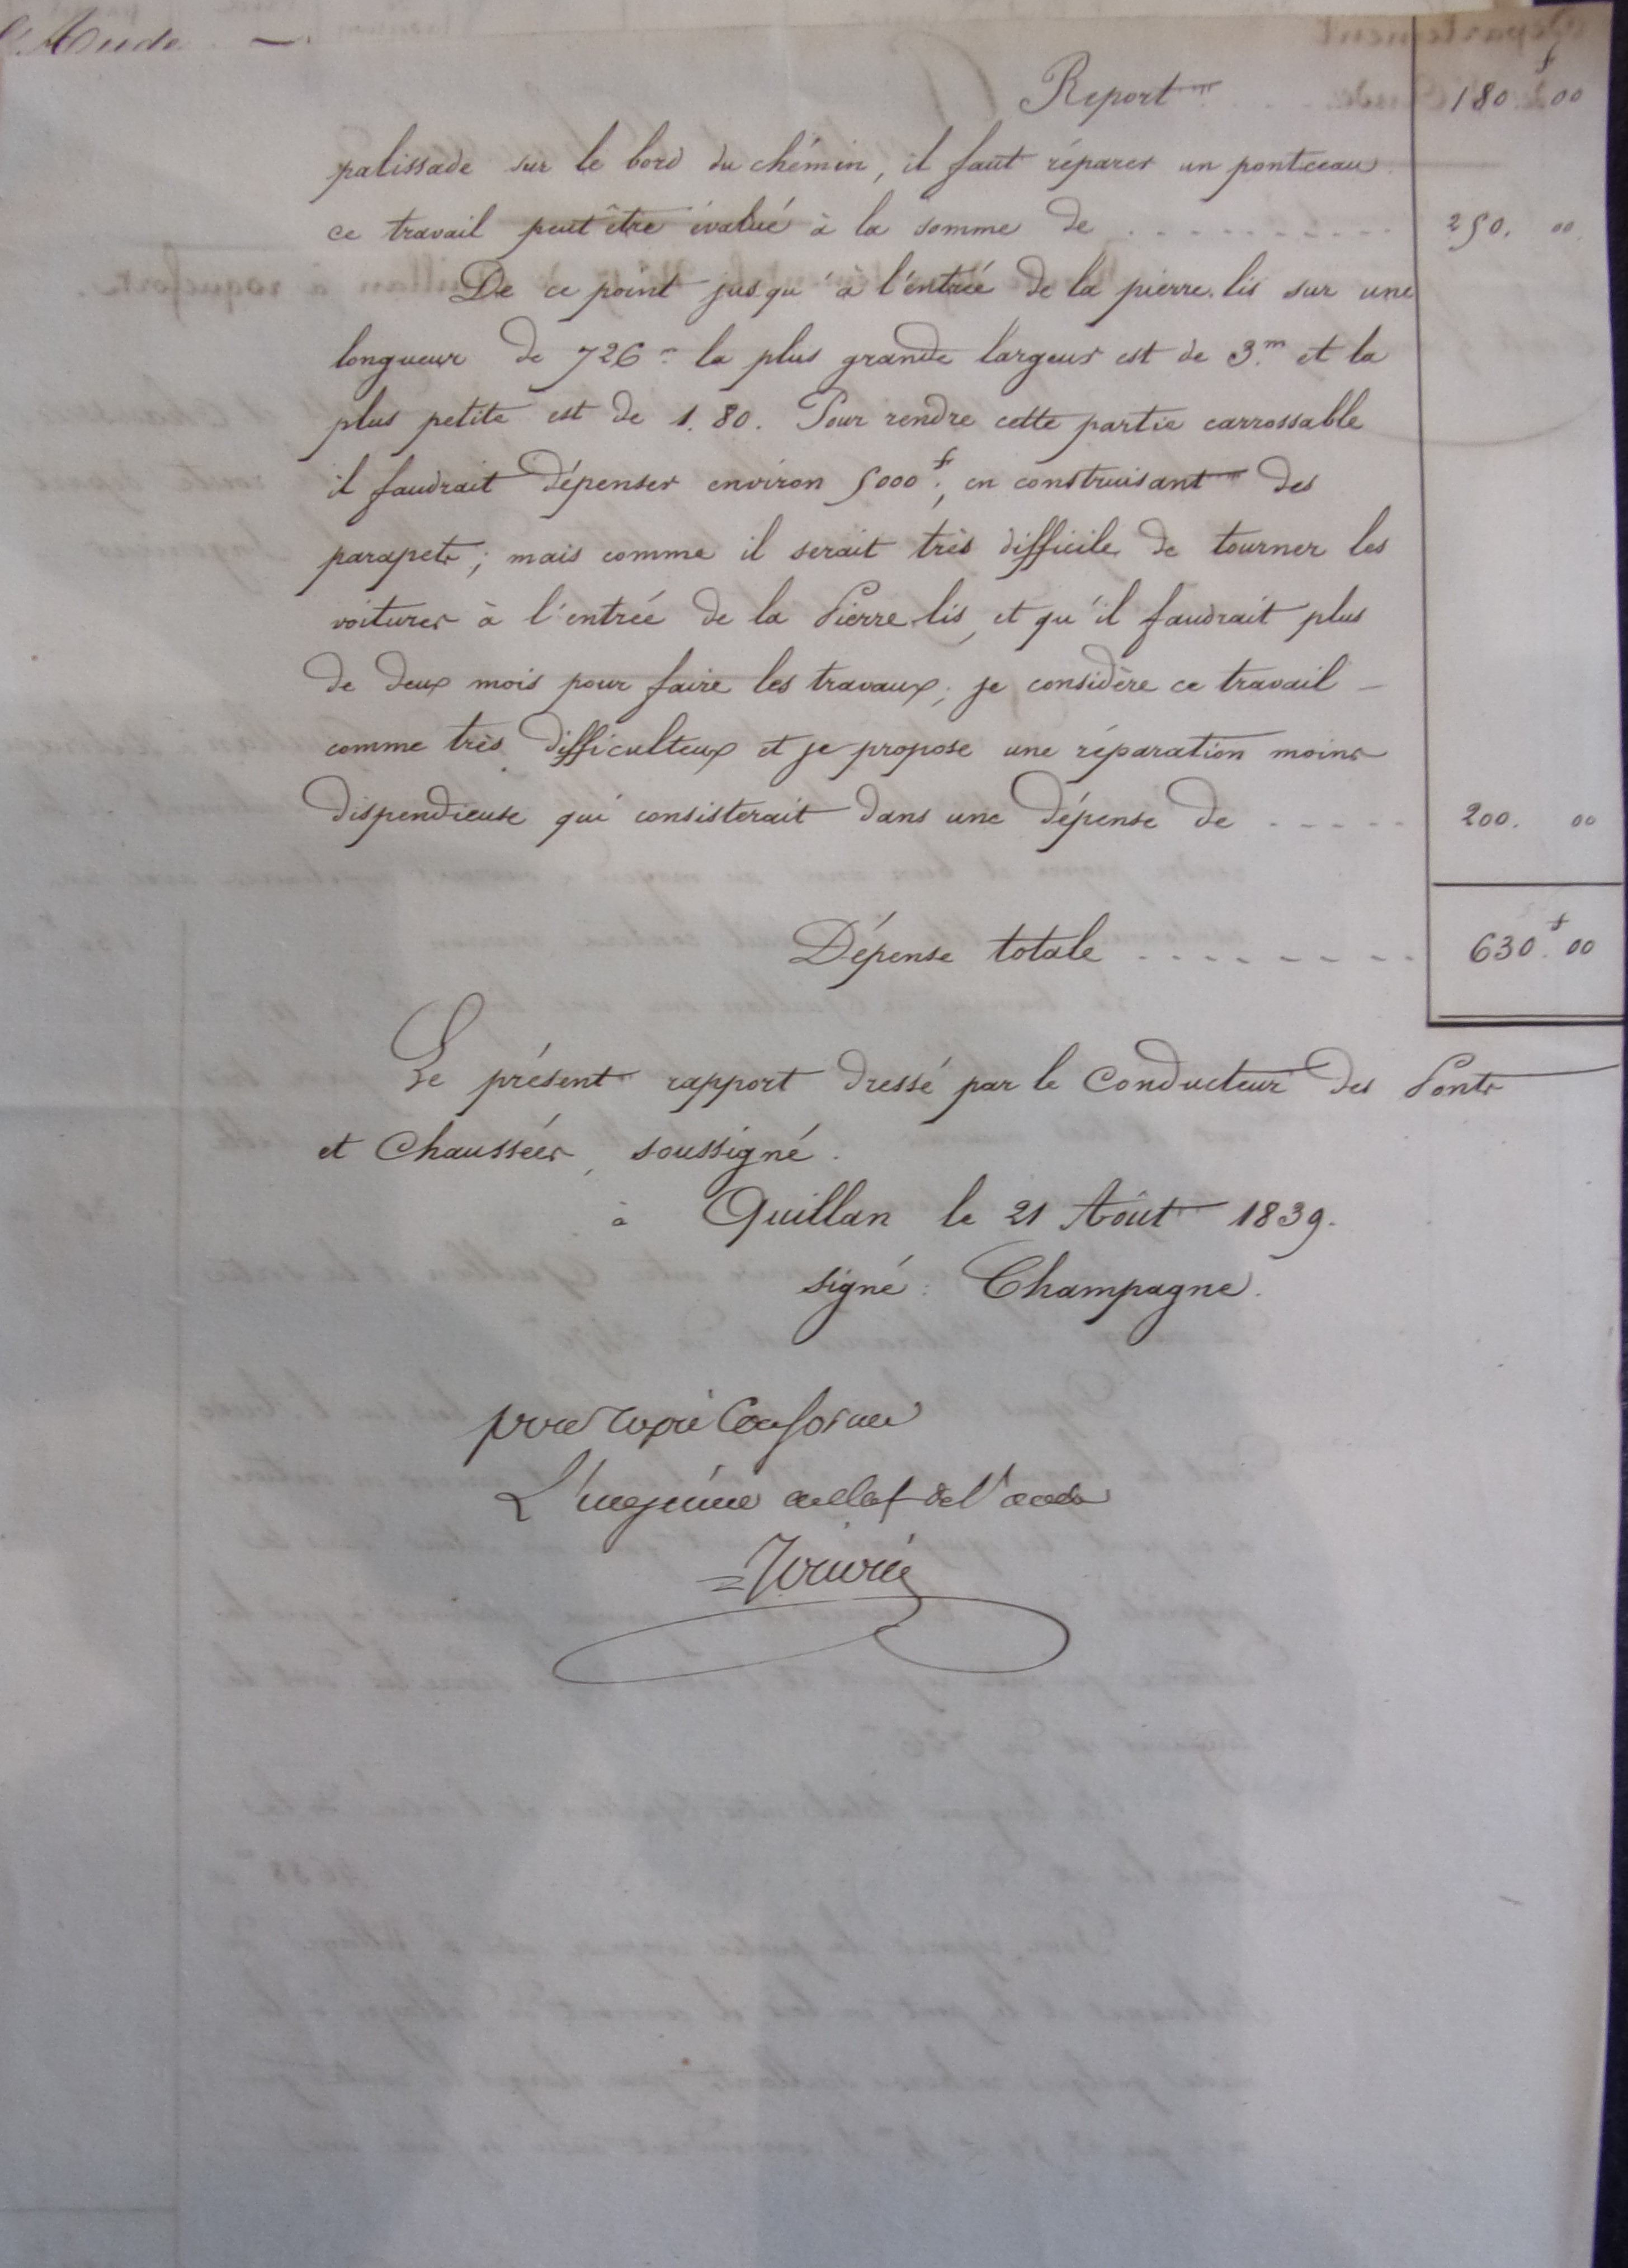 l'Aude
Report 180.f 00
palissade sur le bord du chémin, il faut réparer un pontceau.
ce travail peut être évalué à la somme de .......... 250. 00.
De ce point jusqu'à l'entrée de la pierre-lis sur une
longueur de 726.m la plus grande largeur est de 3.m et la
plus petite est de 1.80. Pour rendre cette partie carrossable
il faudrait dépenser environ 5000.f, en construisant des
parapets; mais comme il serait très difficile de tourner les
voitures à l'entrée de la Pierre-lis, et qu'il faudrait plus
de deux mois pour faire les travaux; je considère ce travail -
comme très difficulteux et je propose une réparation moins
dispendieuse qui consisterait dans une dépense de ..... 200. 00
Dépense totale ........ 630.f 00
Le présent rapport dressé par le Conducteur des Ponts
et Chaussées, soussigné.
à Quillan le 21 Aôut 1839.
signé: Champagne.
pour copie conforme
L'ingénieur en chef de l'aude